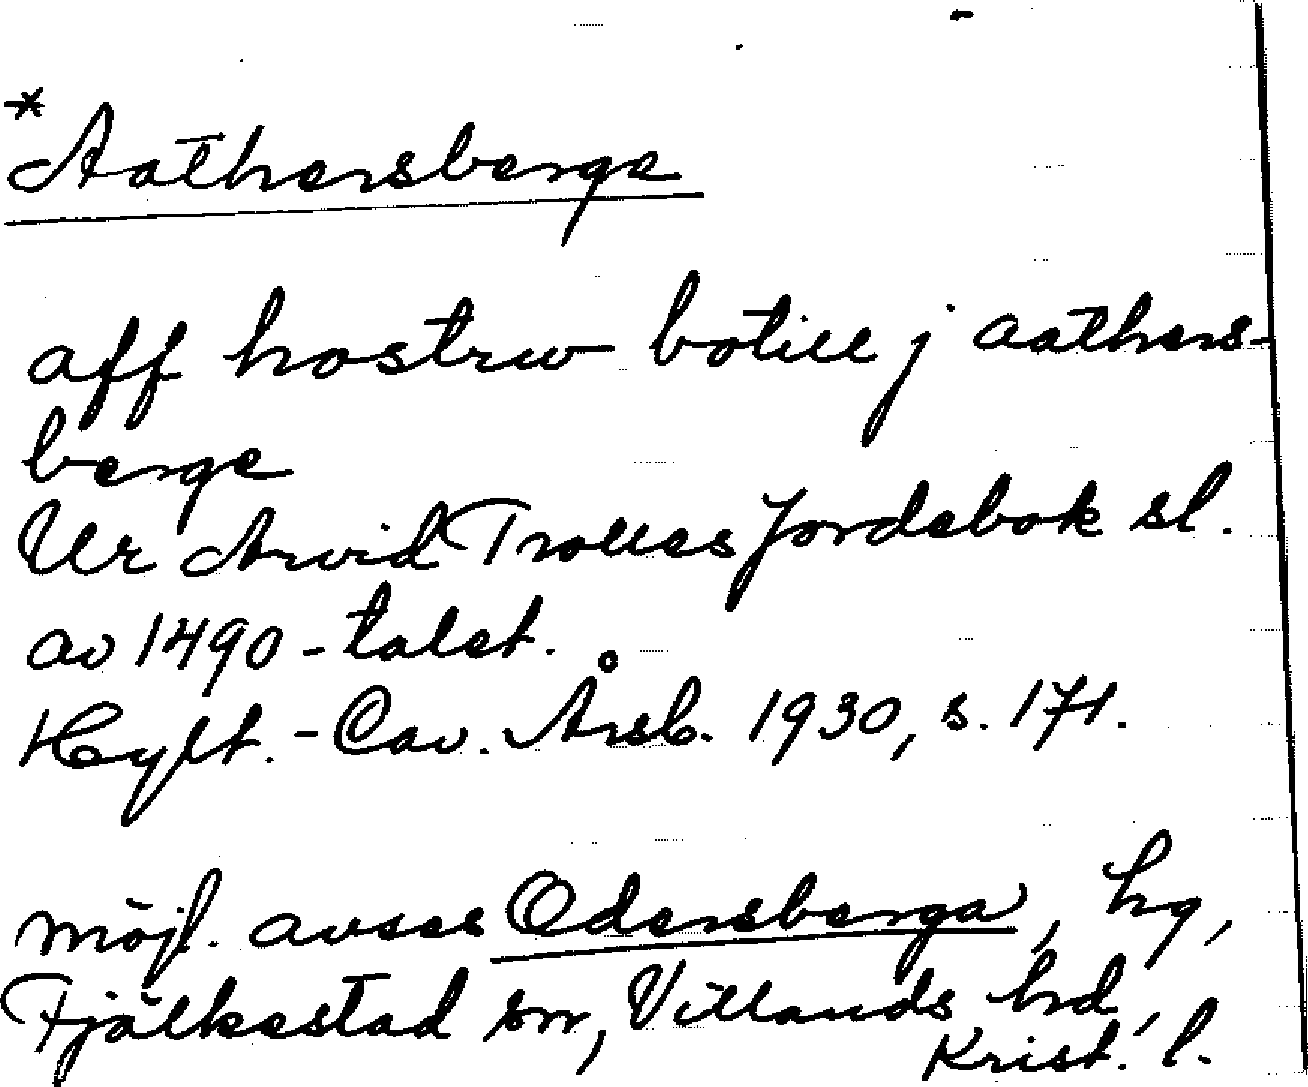 *Aathersberge
aff hostrw botill j aathers-
berge
Ur Arvid Trolles Jordebok sl.
av 1490-talet.
Hylt.-Cav. Årsb. 1930, s. 171.
möjl. avses Odersberga, hg,
Fjälkestad sn, Villands hd,
Krist. l.